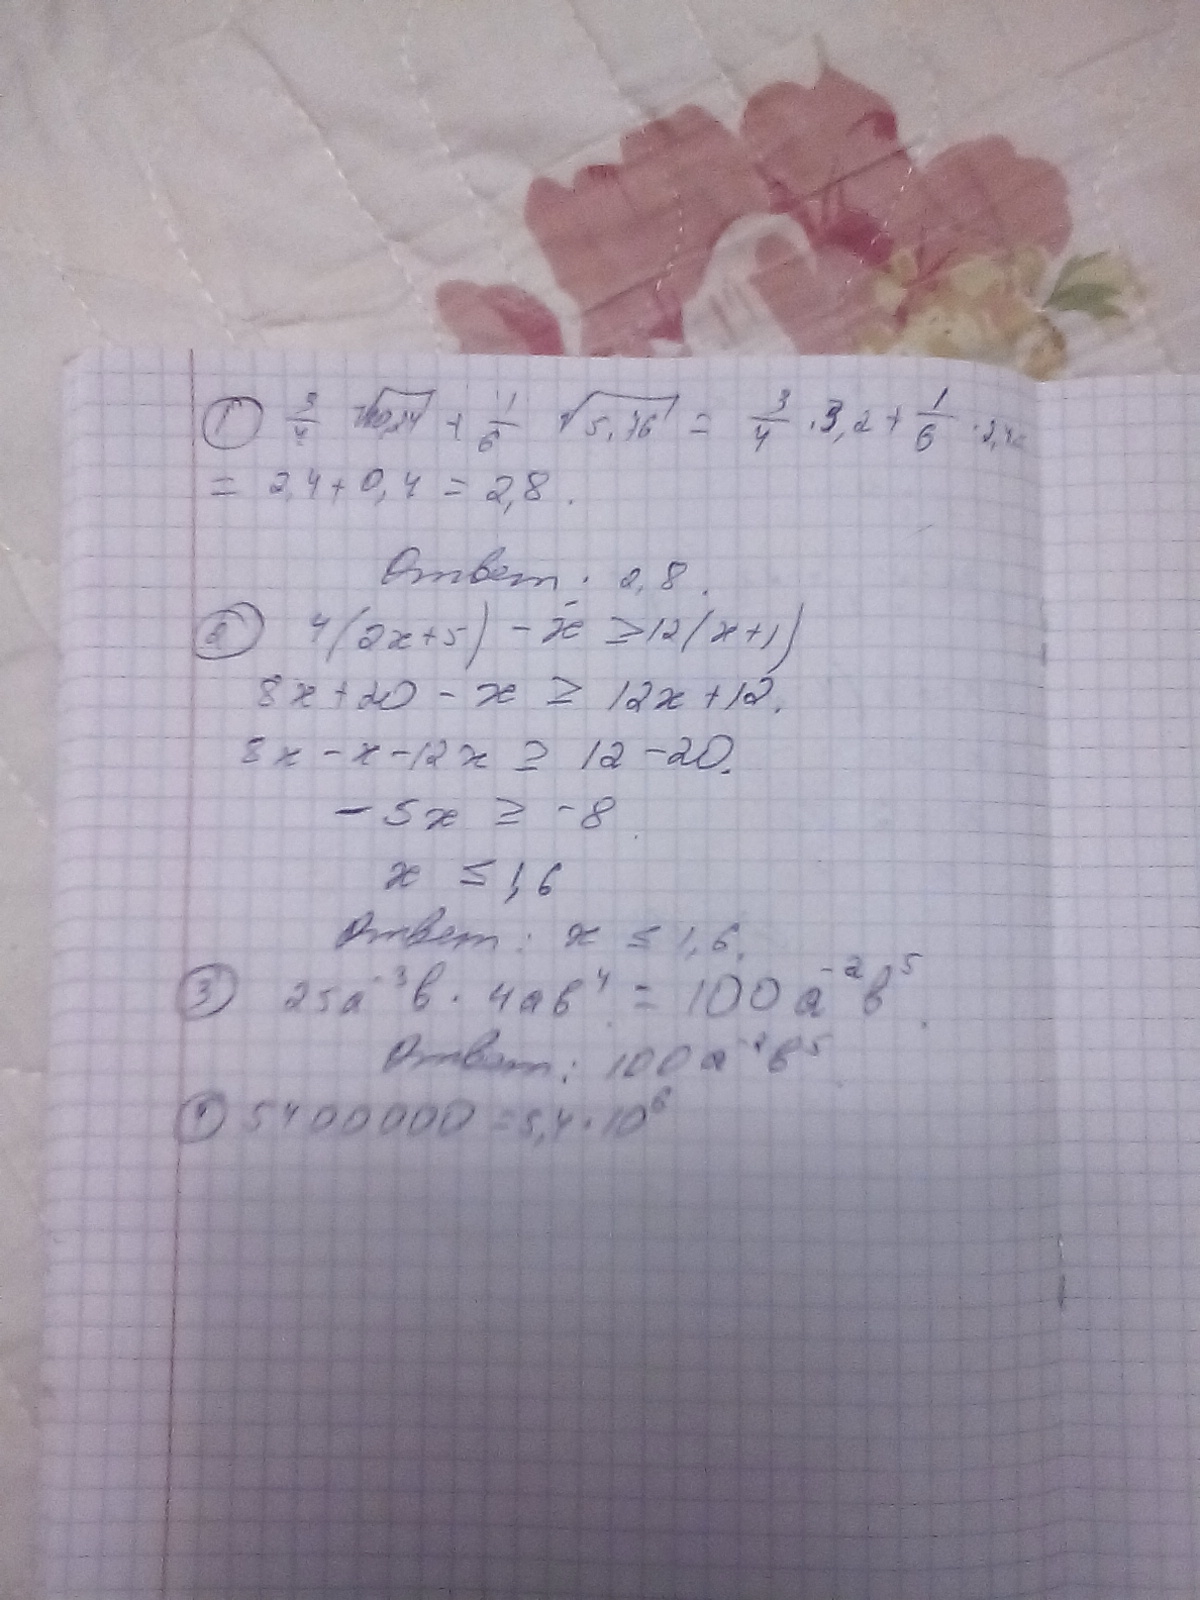 ① 3/4 √10,24 + 1/6 √5,76 = 3/4 · 3,2 + 1/6 · 2,4 =
= 2,4 + 0,4 = 2,8.
Ответ: 2,8.
② 4(2x+5) - x ≥ 12(x+1)
8x+20 - x ≥ 12x+12.
8x - x - 12x ≥ 12 - 20.
- 5x ≥ -8.
x ≤ 1,6
Ответ: x ≤ 1,6.
③ 25a⁻³b · 4ab⁴ = 100a⁻²b⁵.
Ответ: 100a⁻²b⁵
④ 5400000 = 5,4 · 10⁶